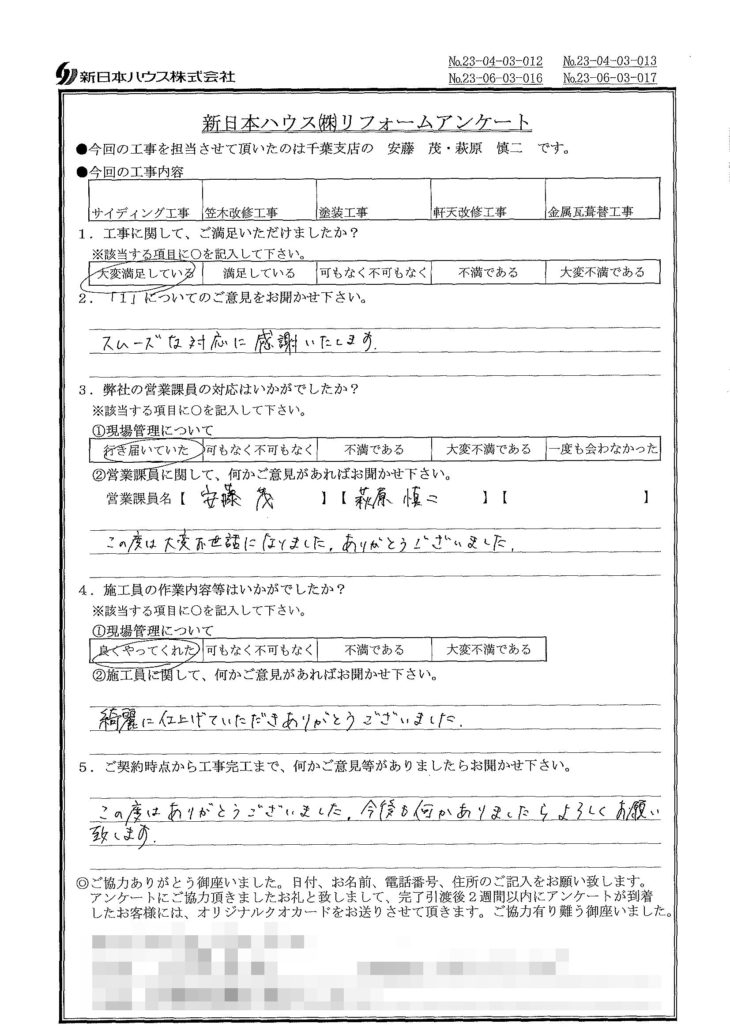 新日本ハウス株式会社
№23-04-03-012 №23-04-03-013
№23-06-03-016 №23-06-03-017
新日本ハウス㈱リフォームアンケート
●今回の工事を担当させて頂いたのは千葉支店の 安藤 茂・萩原 慎二 です。
●今回の工事内容
サイディング工事 笠木改修工事 塗装工事 軒天改修工事 金属瓦葺替工事
1．工事に関して、ご満足いただけましたか？
※該当する項目に○を記入して下さい。
大変満足している 満足している 可もなく不可もなく 不満である 大変不満である
2．「1」についてのご意見をお聞かせ下さい。
スムーズな対応に感謝いたします.
3．弊社の営業課員の対応はいかがでしたか？
※該当する項目に○を記入して下さい。
①現場管理について
行き届いていた 可もなく不可もなく 不満である 大変不満である 一度も会わなかった
②営業課員に関して、何かご意見があればお聞かせ下さい。
営業課員名【 安藤 茂 】【 萩原 慎二 】【 】
この度は大変お世話になりました. ありがとうございました.
4．施工員の作業内容等はいかがでしたか？
※該当する項目に○を記入して下さい。
①現場管理について
良くやってくれた 可もなく不可もなく 不満である 大変不満である
②施工員に関して、何かご意見があればお聞かせ下さい。
綺麗に仕上げていただきありがとうございました.
5．ご契約時点から工事完工まで、何かご意見等がありましたらお聞かせ下さい。
この度はありがとうございました. 今後も何かありましたらよろしくお願い
致します.
◎ご協力ありがとう御座いました。日付、お名前、電話番号、住所のご記入をお願い致します。
アンケートにご協力頂きましたお礼と致しまして、完了引渡後２週間以内にアンケートが到着
したお客様には、オリジナルクオカードをお送りさせて頂きます。ご協力有り難う御座いました。